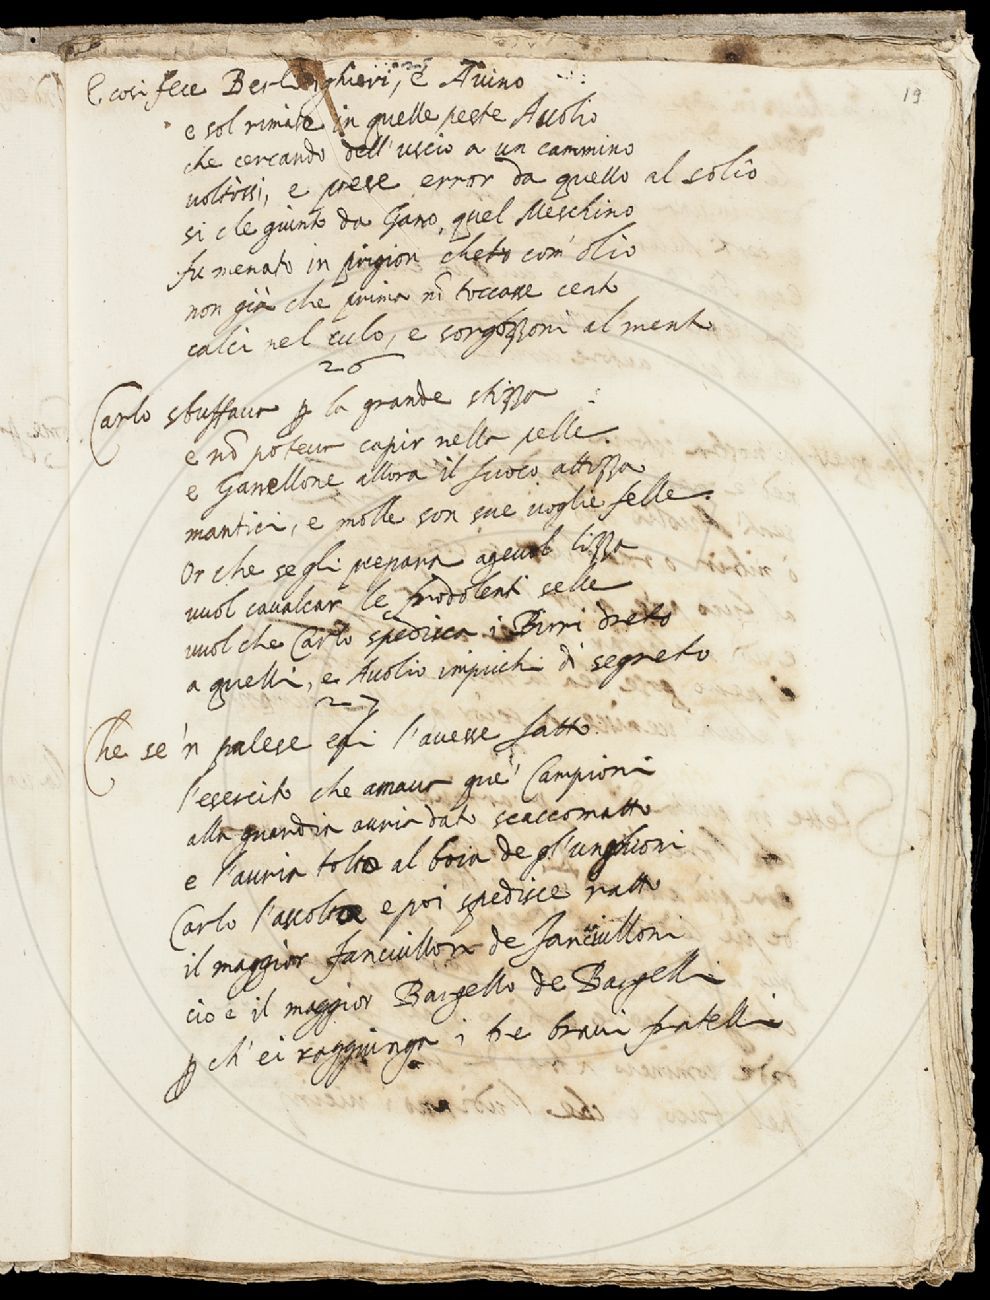 19
E cosi fece Berlinghieri, e Avino
e sol rimase in quelle peste Avolio
che cercando dell'uscio a un cammino
voltossi, e prese error da quello al solio
si che giunto da Gano, quel Meschino
fu menato in prigion cheto com'olio
non già che prima nõ toccasse cento
calci nel culo, e sorgozzoni al mento
26
Carlo sbuffava ꝑ la grande stizza
e nõ poteva capir nella pelle.
e Ganellone allora il fuoco attizza
mantici, e molle son sue voglie felle.
Or che segli prepara agevol lizza
vuol cavalcar le frodolenti selle
vuol che Carlo spedisca i Birri dreto
a quelli, e Avolio impicchi di segreto
27
Che se 'n palese egli l'avesse fatto
l'esercito che amava que' Campioni
alla guardia avria dato scaccomatto
e l'avria tolto al boia de gl'unghioni
Carlo l'ascolta e poi spedisce ratto
il maggior fanciullon de fanciulloni
cio è il maggior Bargello de Bargelli
ꝑ ch'ei raggiunga i tre bravi fratelli